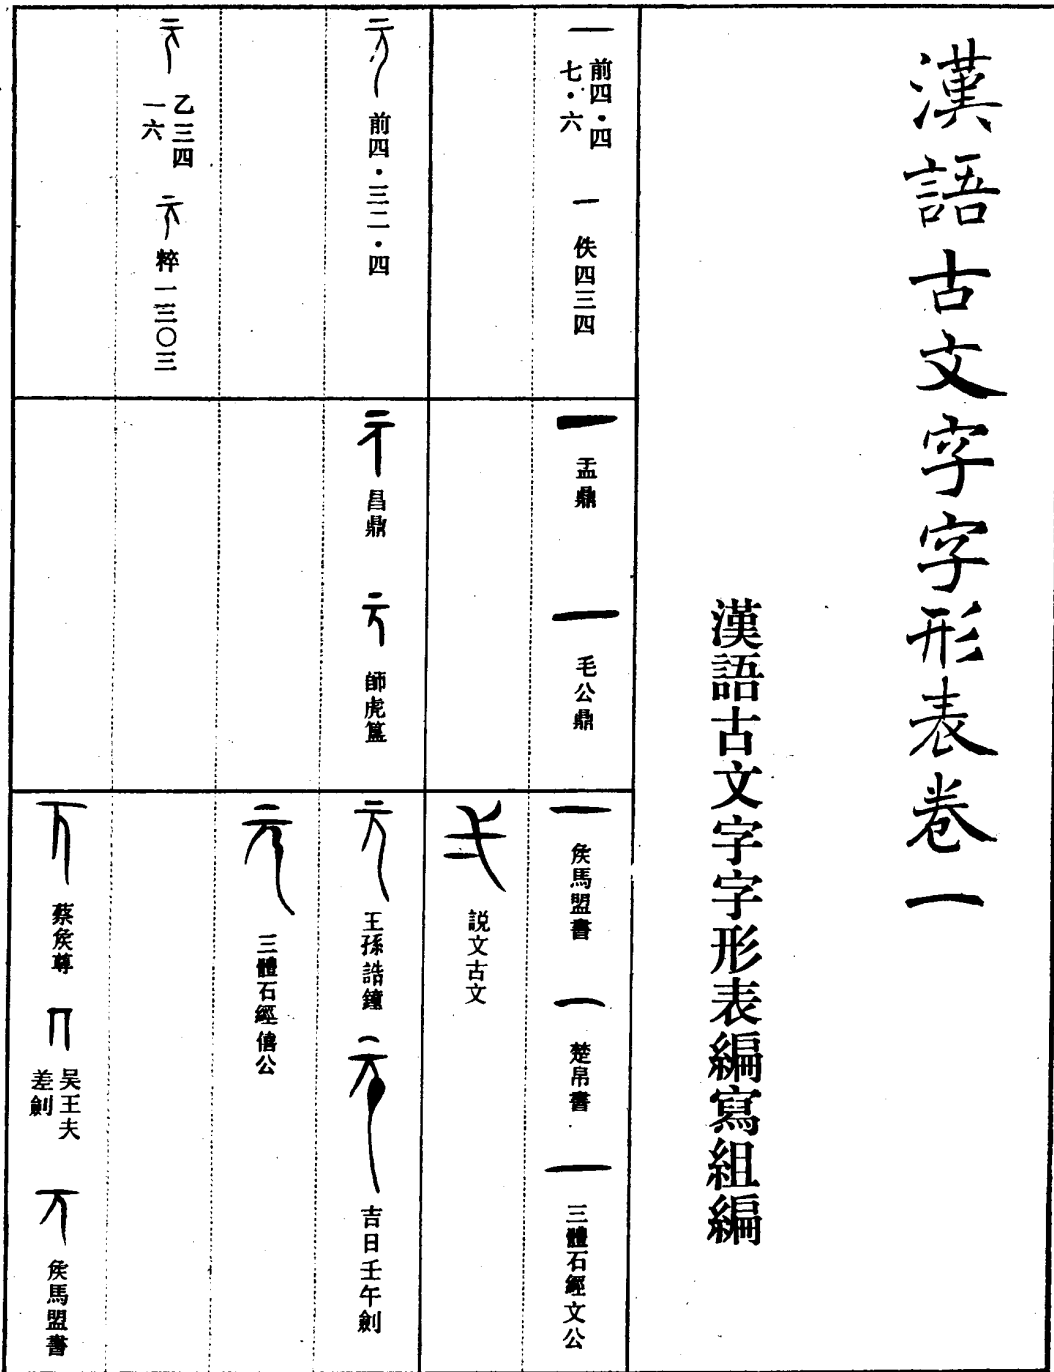 漢語古文字字形表卷一
漢語古文字字形表編寫組編
一
前四·四
七·六
一
佚四三四
一
盂鼎
一
毛公鼎
一
矦馬盟書
一
楚帛書
一
三體石經文公
説文古文
元
前四·三二·四
元
昌鼎
元
師虎簋
元
王孫誥鐘
元
吉日壬午劍
元
三體石經僖公
元
乙三四
一六
元
粹一三〇三
蔡矦尊
吴王夫
差劍
矦馬盟書